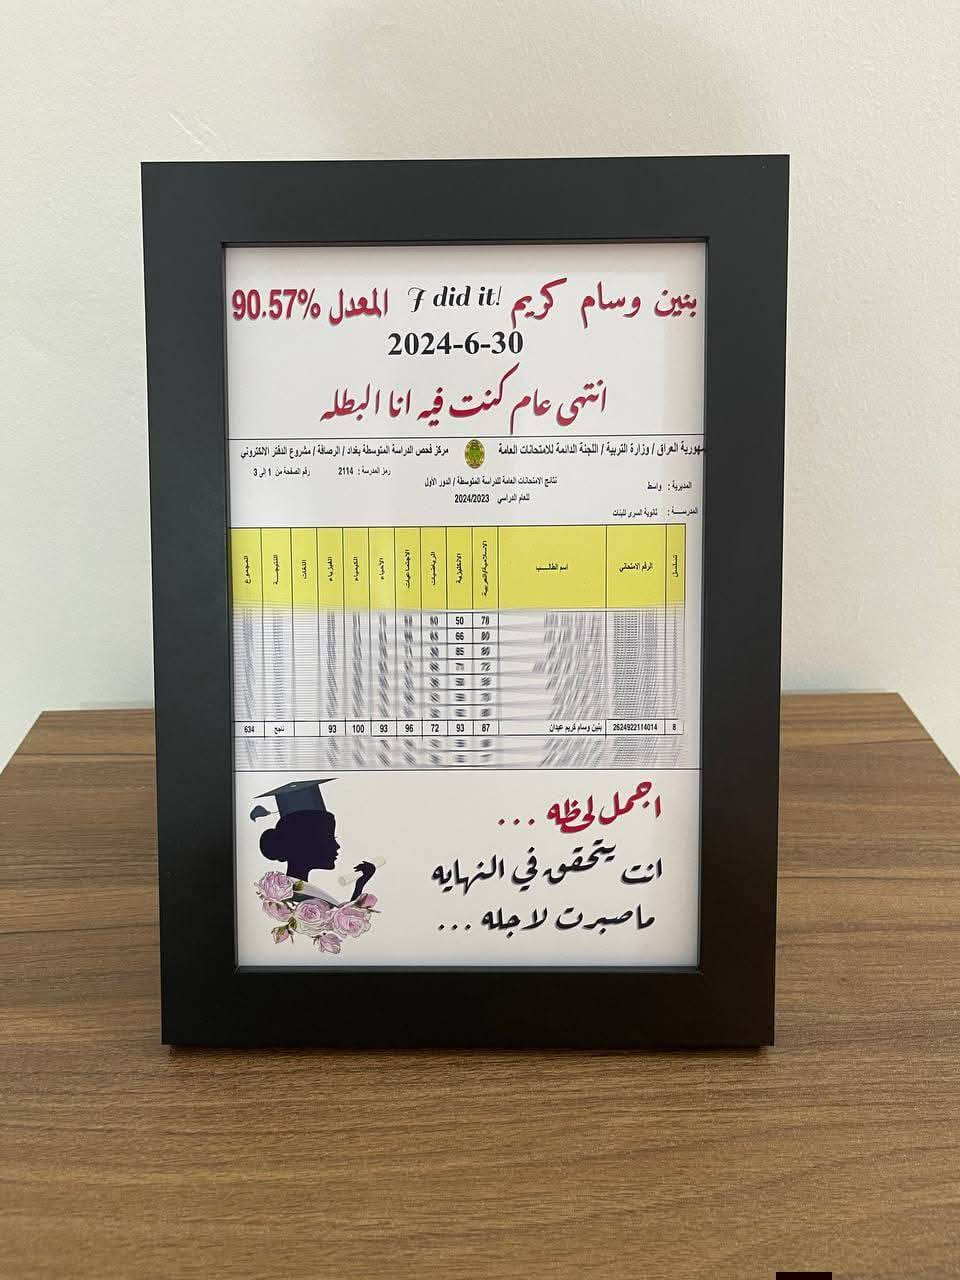 بنين وسام كريم I did it! المعدل 90.57%
2024-6-30
انتهى عام كنت فيه انا البطله
جمهورية العراق / وزارة التربية / اللجنة الدائمة للامتحانات العامة مركز فحص الدراسة المتوسطة بغداد / الرصافة / مشروع الدفتر الالكتروني
رمز المدرسة : 2114 رقم الصفحة من 1 إلى 3
نتائج الامتحانات العامة للدراسة المتوسطة / الدور الأول
المديرية : واسط
للعام الدراسي 2024/2023
المدرسة : ثانوية السرى للبنات
تسلسل الرقم الامتحاني اسم الطالب الاسلامية العربية الانكليزية الرياضيات الاجتماعيات الأحياء الكيمياء الفيزياء اللغات النتيجة المجموع
78 50 80
80 66
80 85
72 71
8 2624922114014 بنين وسام كريم عبدان 87 93 72 96 93 100 93 ناجح 634
اجمل لحظه ...
انت يتحقق في النهايه
ماصبرت لاجله ...